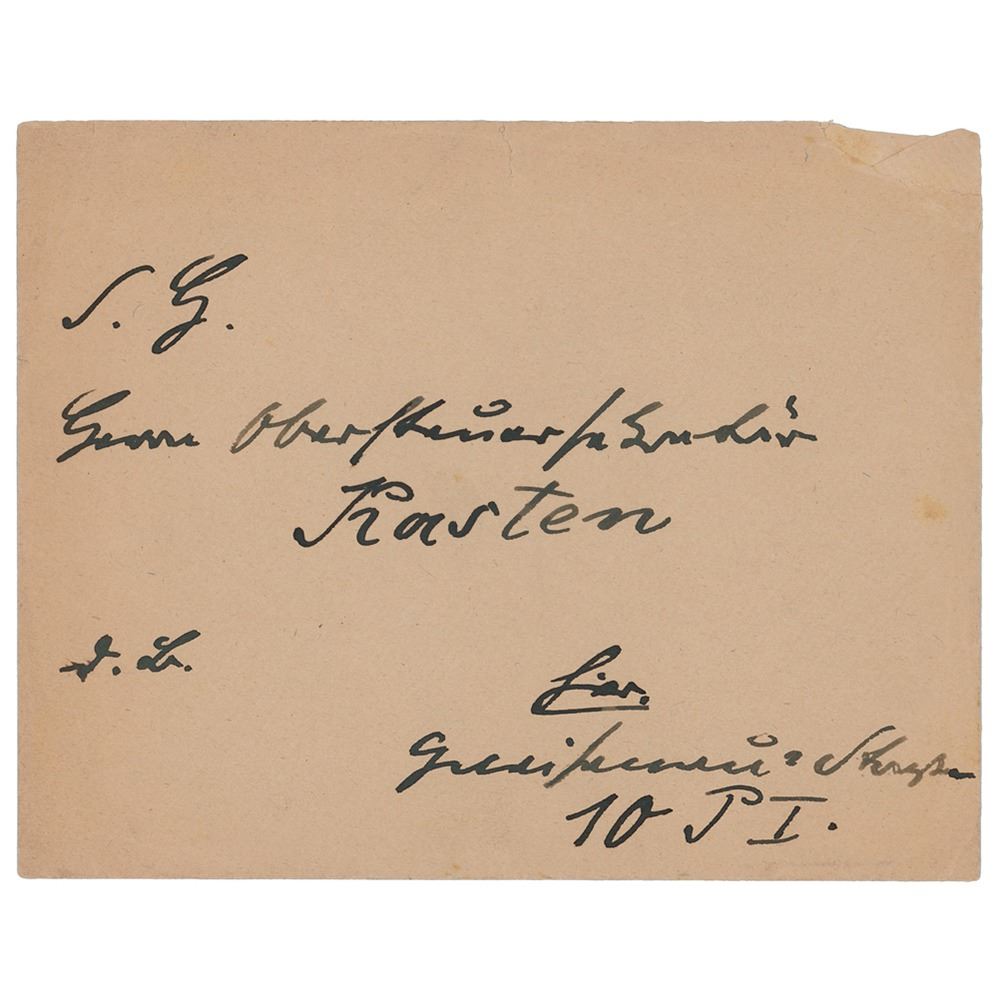 S. H.
Herrn Obersteuersekretär
Kasten
d. B.
Hier.
Gneisenau-Straße
10 P I.